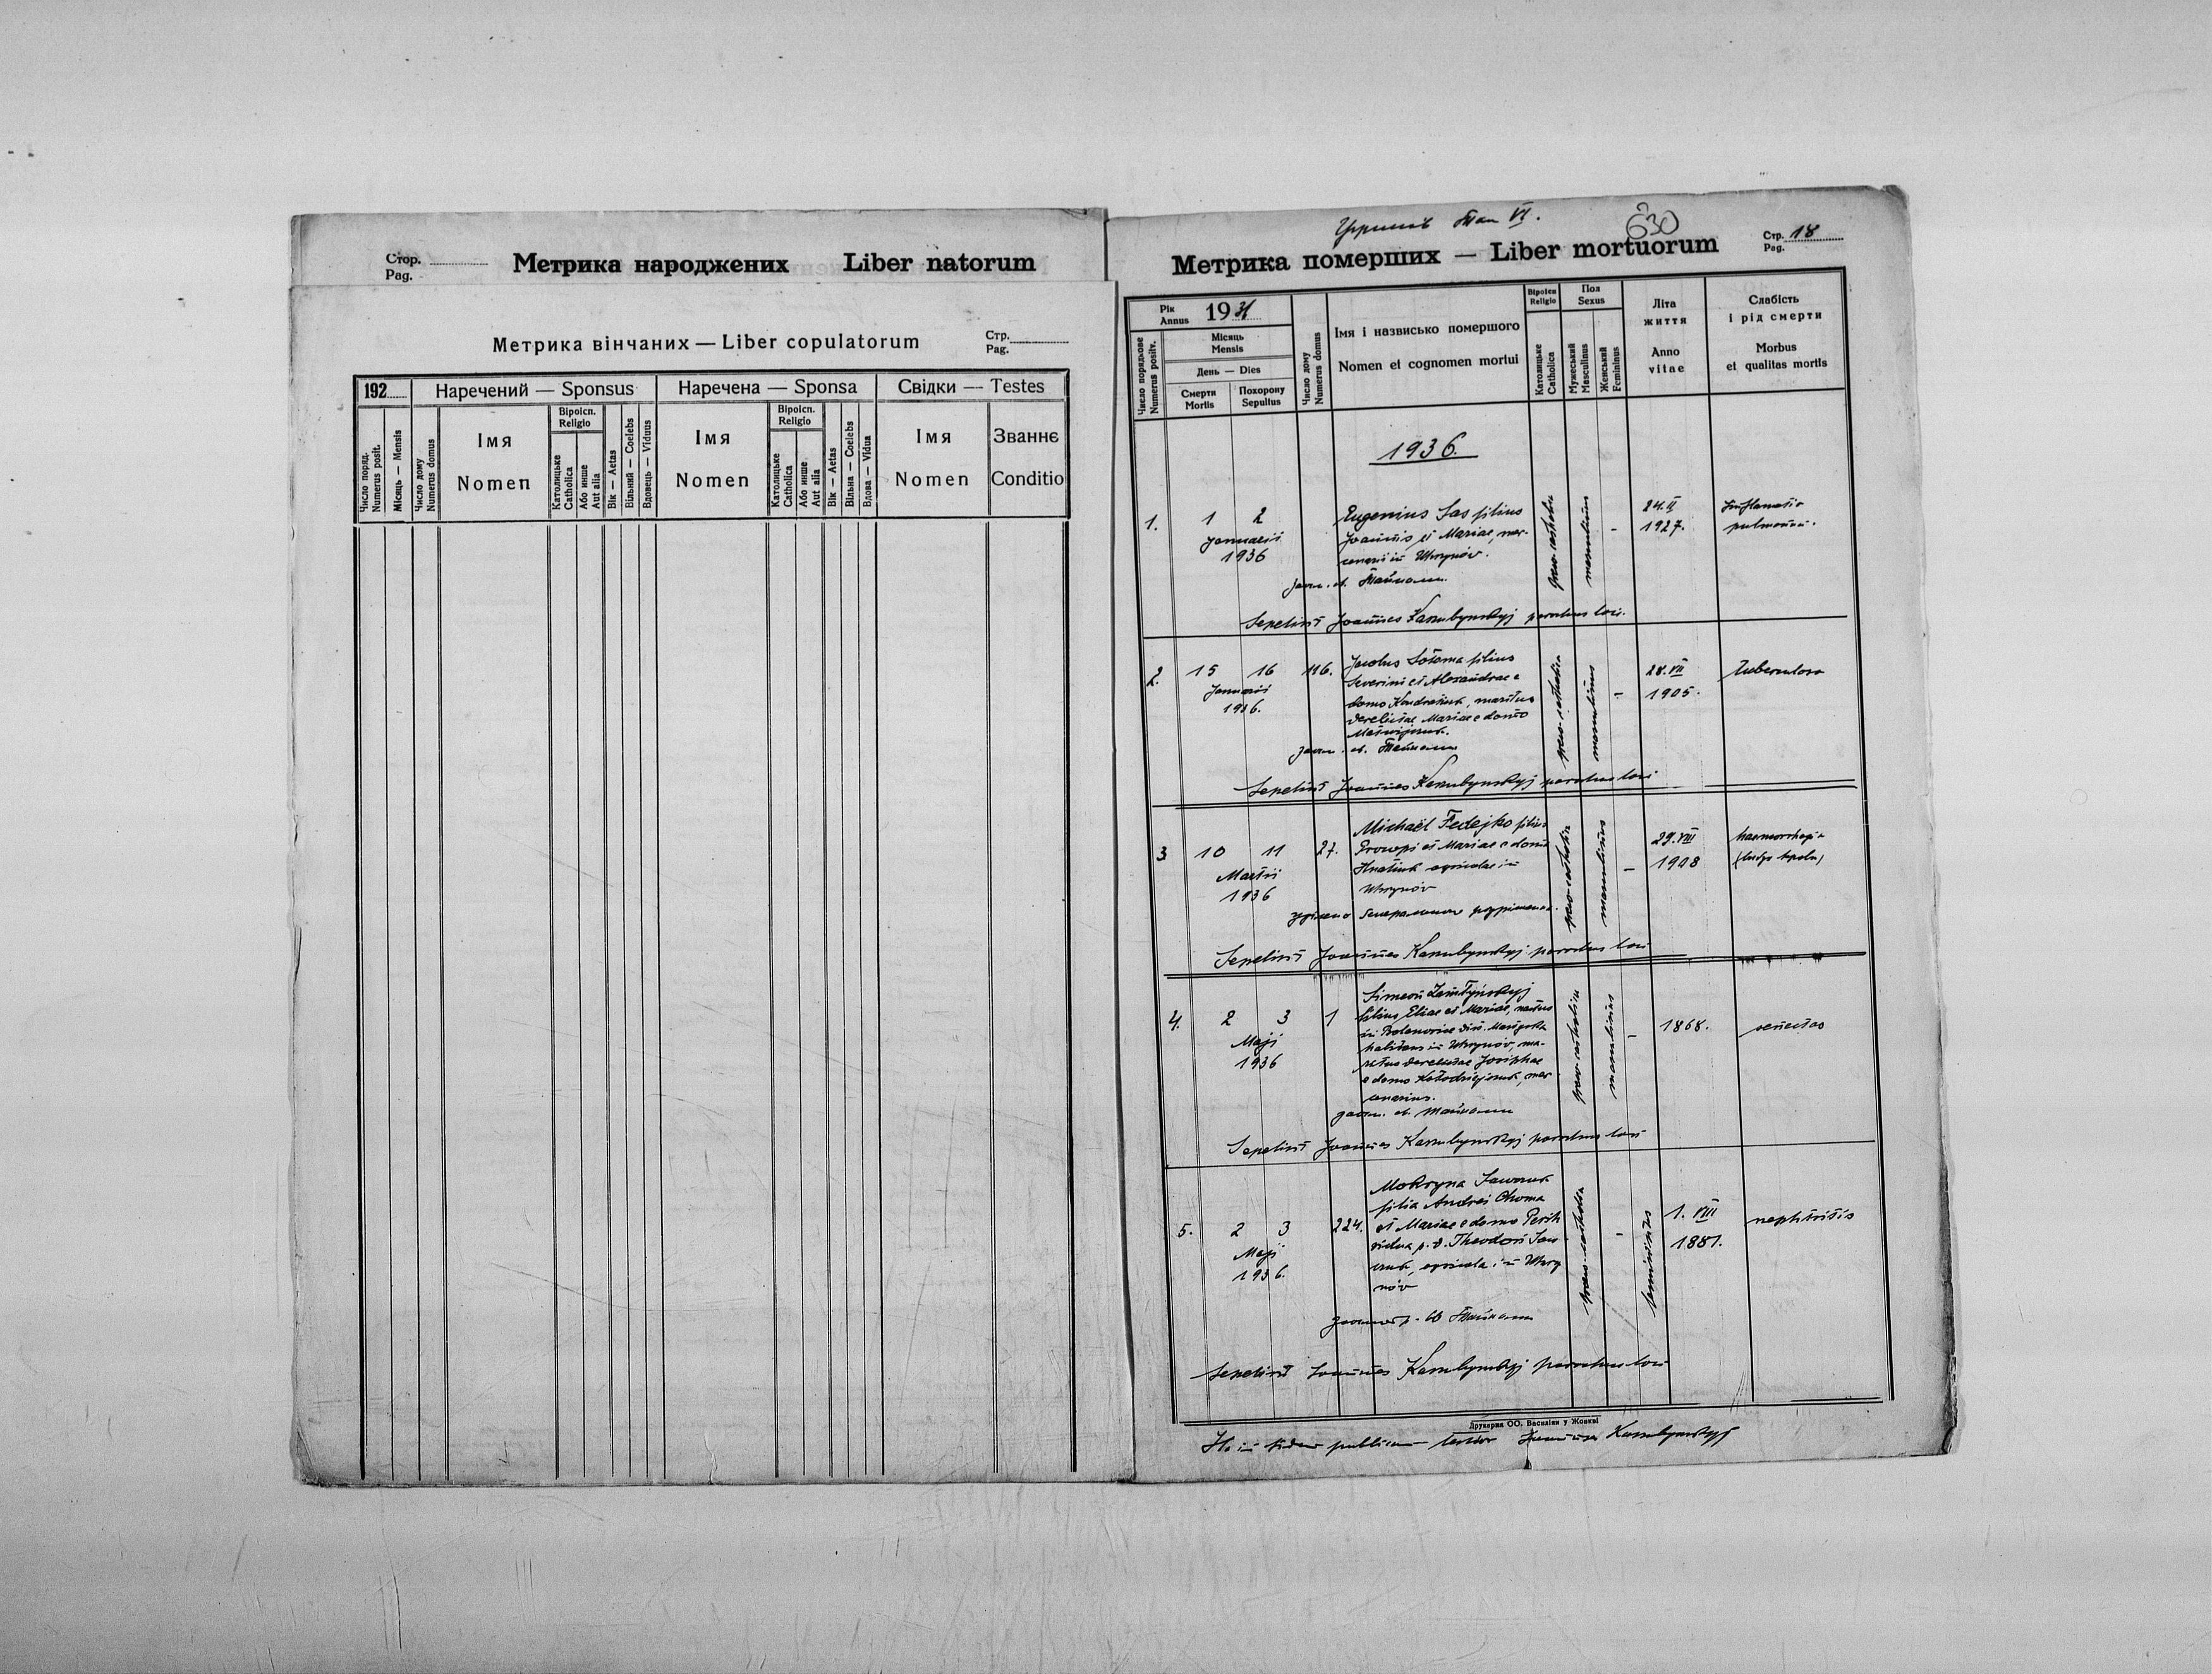 Стор.
Pag.
Метрика народжених Liber natorum
Метрика вінчаних — Liber copulatorum
Стр.
Pag.
192
Наречений — Sponsus
Наречена — Sponsa
Свідки — Testes
Число поряд.
Numerus posit.
Місяць — Mensis
Число дому
Numerus domus
Імя
Nomen
Віроісп.
Religio
Католицьке
Catholica
Або инше
Aut alia
Вік — Aetas
Вільний — Coelebs
Вдовець — Viduus
Імя
Nomen
Віроісп.
Religio
Католицьке
Catholica
Або инше
Aut alia
Вік — Aetas
Вільна — Coelebs
Вдова — Vidua
Імя
Nomen
Званнє
Conditio
VI.
630
Метрика померших — Liber mortuorum
Стр. 18
Pag.
Рік
Annus 1931
Число порядьове
Numerus positv.
Місяць
Mensis
День — Dies
Смерти
Mortis
Похорону
Sepultus
Число дому
Numerus domus
Імя і назвисько помершого
Nomen et cognomen mortui
Віроісп
Religio
Католицьке
Catholica
Пол
Sexus
Мужеський
Masculinus
Женський
Femininus
Літа
життя
Anno
vitae
Слабість
і рід смерти
Morbus
et qualitas mortis
1936.
1.
1 2
Januarii
1936
Eugenius Sas filius
Joannis et Mariae, mer-
cenarii in Uhrynów.
greco-catholica
masculinus
-
24.II
1927.
Inflamatio
pulmonum.
Sepelivit Joannes Kasubynskyj parochus loci.
2.
15 16
Januarii
1936.
116.
Jacobus Sotoma filius
Severini et Alexandrae e
domo Kondratiuk, maritus
derelictae Mariae e domo
greco-catholica
masculinus
-
28.VII
1905.
tuberculosa
Sepelivit Joannes Kasubynskyj parochus loci
3
10 11
Martii
1936
27.
Michaël Fedejko filius
Procopi et Mariae e domo
Hnatiuk agricolae in
Uhrynów
greco-catholica
masculinus
-
29.VIII
1908
haemorrhagia
Sepelivit Joannes Kasubynskyj parochus loci
4.
2 3
Maji
1936
1
Simeon
filius Eliae et Mariae, natus
habitans in Uhrynów, ma-
ritus derelictae Josephae
e domo mer-
cenarius.
greco-catholica
masculinus
-
1868.
senectus
Sepelivit Joannes Kasubynskyj parochus loci
5.
2 3
Maji
1936.
224.
Mokryna Sawczuk
filia Andrei Choma
et Mariae e domo
vidua p. d. Theodori Saw-
czuk, agricola in Uhry-
nów
greco-catholica
-
femininus
1. VIII
1881.
nephritis
Sepelivit Joannes Kasubynskyj parochus loci
Друкарня ОО. Василіян у Жовкві
publicam testor Joannes Kasubynskyj